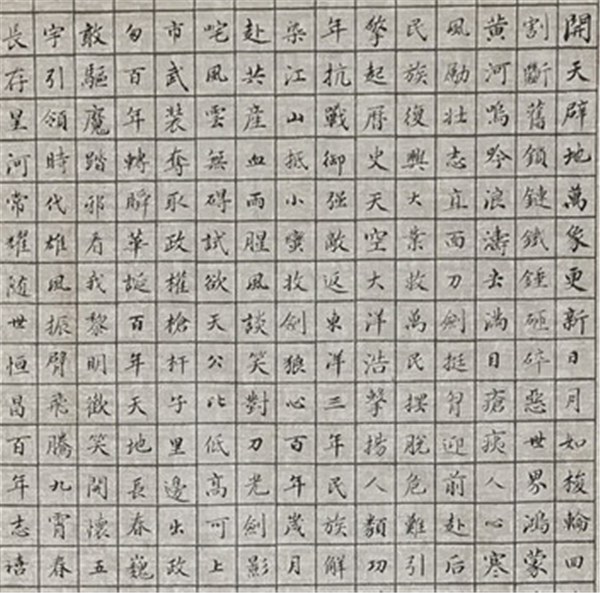 開天辟地萬象更新日月如梭輪回
割斷舊鎖鏈鐵錘砸碎惡世界鴻蒙
黄河嗚吟浪濤去滿目瘡痍人心寒
風勵壮志直面刀劍挺胷迎前赴后
民族復興大業救萬民擺脱危難引
擎起歷史天空大洋浩擊揚人類功
年抗戰御强敵返東洋三年民族解
染江山抵小蠻收劍狼心百年歲月
赴共産血雨腥風談笑對刀光劍影
咤風雲無碍試欲天公比低高可上
市武装奪取政權槍杆子里邊出政
旬百年轉瞬華誕百年天地長春巍
敢驅魔踏邪看我黎明歡笑開懷五
字引領時代雄風振臂飛騰九霄春
長存星河常耀随世恒昌百年志禧